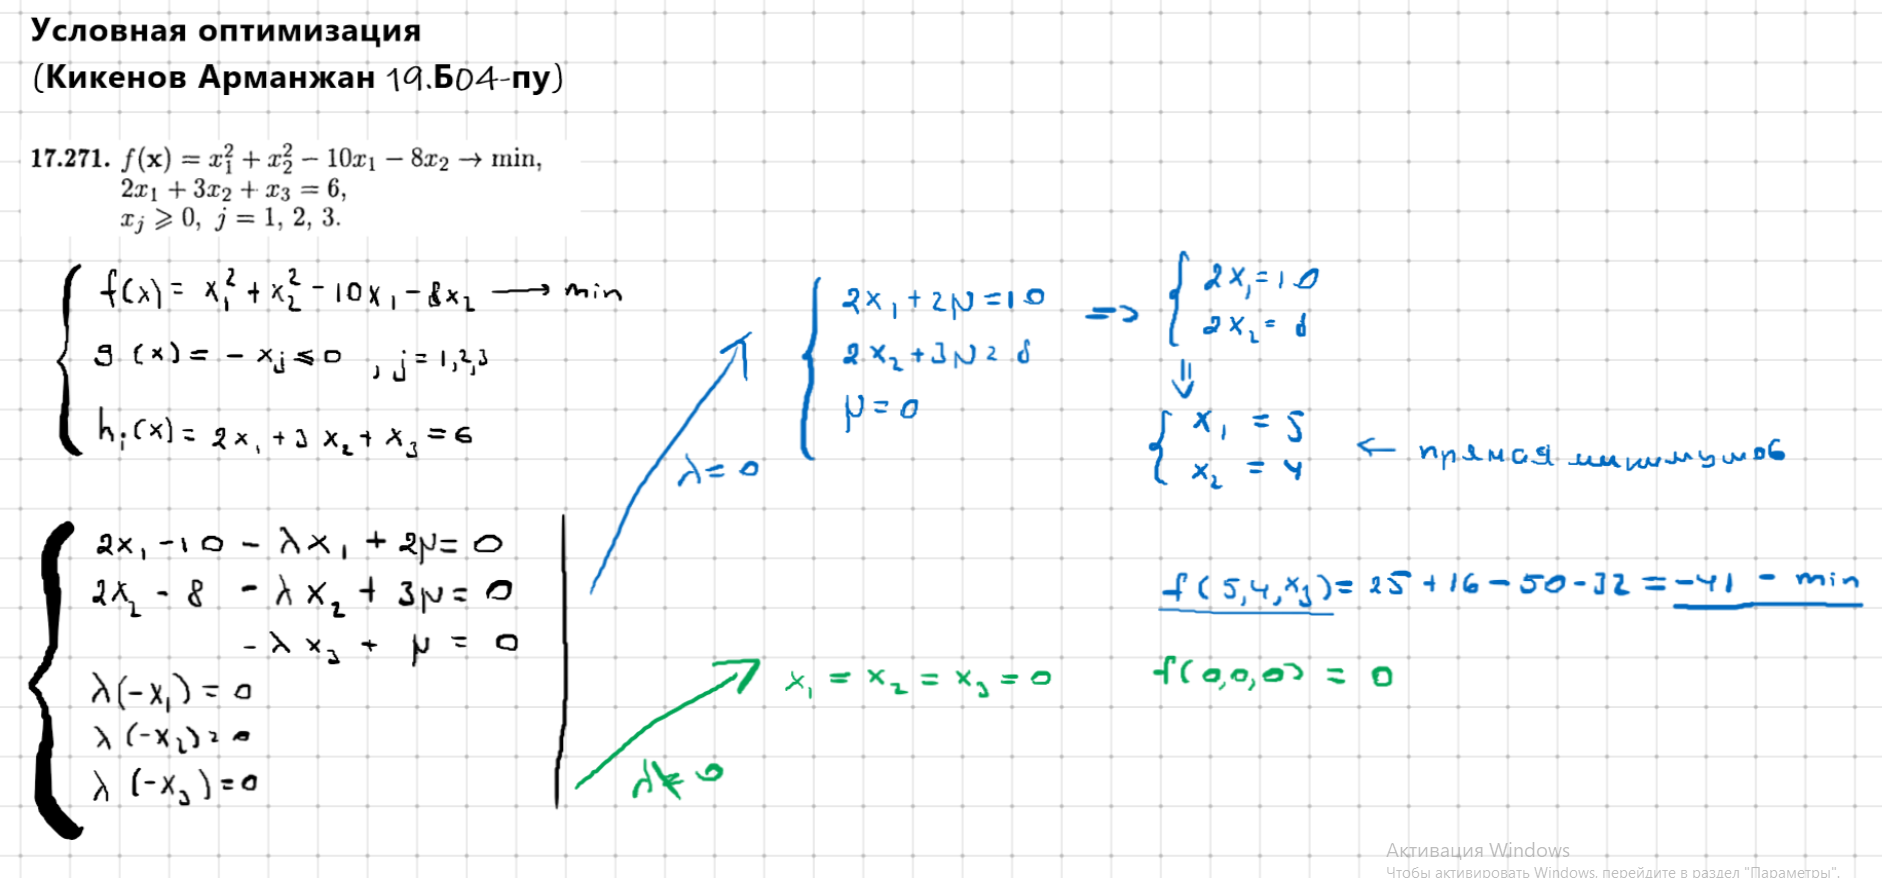 Условная оптимизация
(Кикенов Арманжан 19.Б04-пу)
17.271. f(x) = x₁² + x₂² − 10x₁ − 8x₂ → min,
2x₁ + 3x₂ + x₃ = 6,
xⱼ ⩾ 0, j = 1, 2, 3.
f(x) = x₁² + x₂² - 10x₁ - 8x₂ → min
g(x) = - xⱼ ≤ 0 , j = 1,2,3
hᵢ(x) = 2x₁ + 3x₂ + x₃ = 6
2x₁ - 10 - λx₁ + 2μ = 0
2x₂ - 8 - λx₂ + 3μ = 0
- λx₃ + μ = 0
λ(-x₁) = 0
λ(-x₂) = 0
λ(-x₃) = 0
λ = 0
2x₁ + 2μ = 10
2x₂ + 3μ = 8
μ = 0
=>
2x₁ = 10
2x₂ = 8
⇓
x₁ = 5
x₂ = 4
← прямая минимумов
f(5,4,x₃) = 25 + 16 - 50 - 32 = -41 - min
λ ≠ 0
x₁ = x₂ = x₃ = 0
f(0,0,0) = 0
Активация Windows
Чтобы активировать Windows, перейдите в раздел "Параметры".